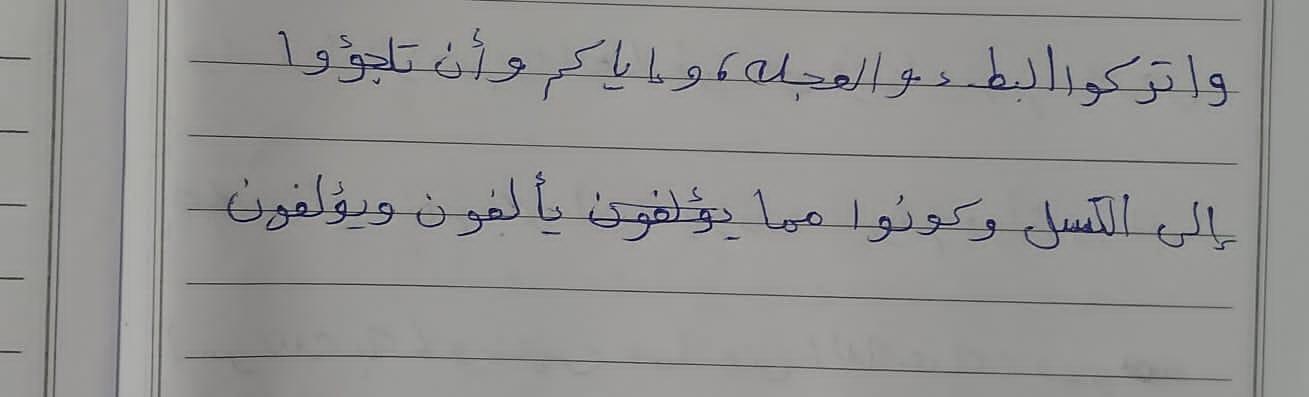 واتركوا البطء والعجلة، وإياكم وأن تلجؤوا
إلى الكسل وكونوا مما يؤلفون يألفون ويؤلفون